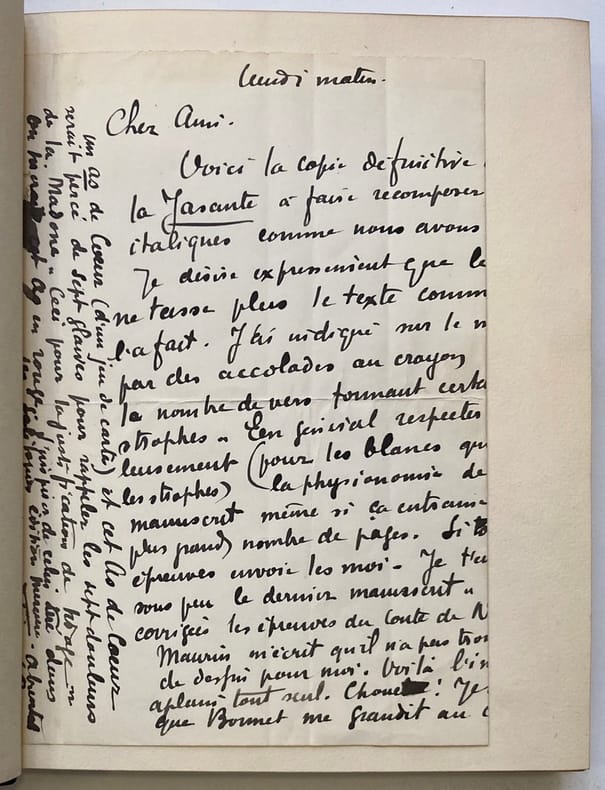 lundi matin.
Cher Ami.
Voici la copie définitive
la Passante à faire recomposer
italiques comme nous avons
Je désire expressément que le
ne tasse plus le texte comm
l'a fait. J'ai indiqué sur le m
par des accolades au crayon
le nombre de vers formant certa
strophes. En général respecter
leusement (pour les blancs qu
les strophes) la physionomie de
manuscrit même si ça entraine
plus grand nombre de pages. Si tô
épreuves envoie les moi. Je t'en
sous peu le dernier manuscrit
corrigées les épreuves du Conte de N
Maurin m'écrit qu'il n'a pas trou
de dessin pour moi. Voilà l'in
aplani tout seul. Chouette! Je
que Bonnet me grandit au
un as de Coeur (d'un jeu de carte) et cet As de Coeur
serait percé de sept glaives pour rappeler les sept douleurs
de la Madone. Ceci pour la justification de tirage
en rouge
édition mercure